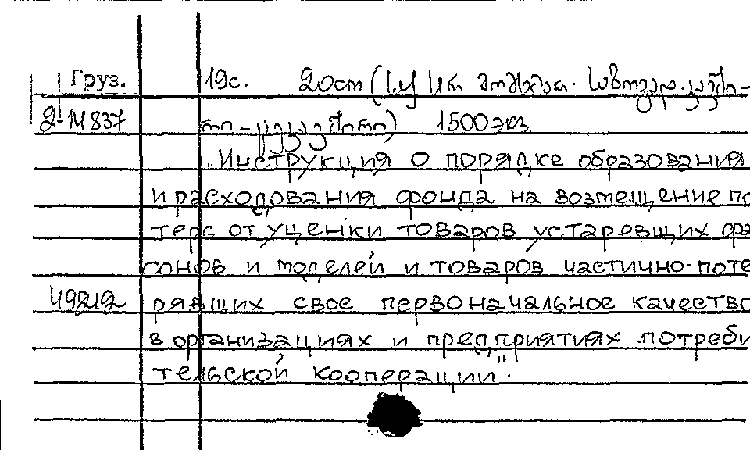 Груз. 19с. 20см
2-М837 1500 экз
„Инструкция о порядке образования
и расходования фонда на возмещение по
терь от уценки товаров устаревших фа
сонов и моделей и товаров частично-поте
49212 рявших свое первоначальное качество
в организациях и предприятиях потреби
тельской кооперации".